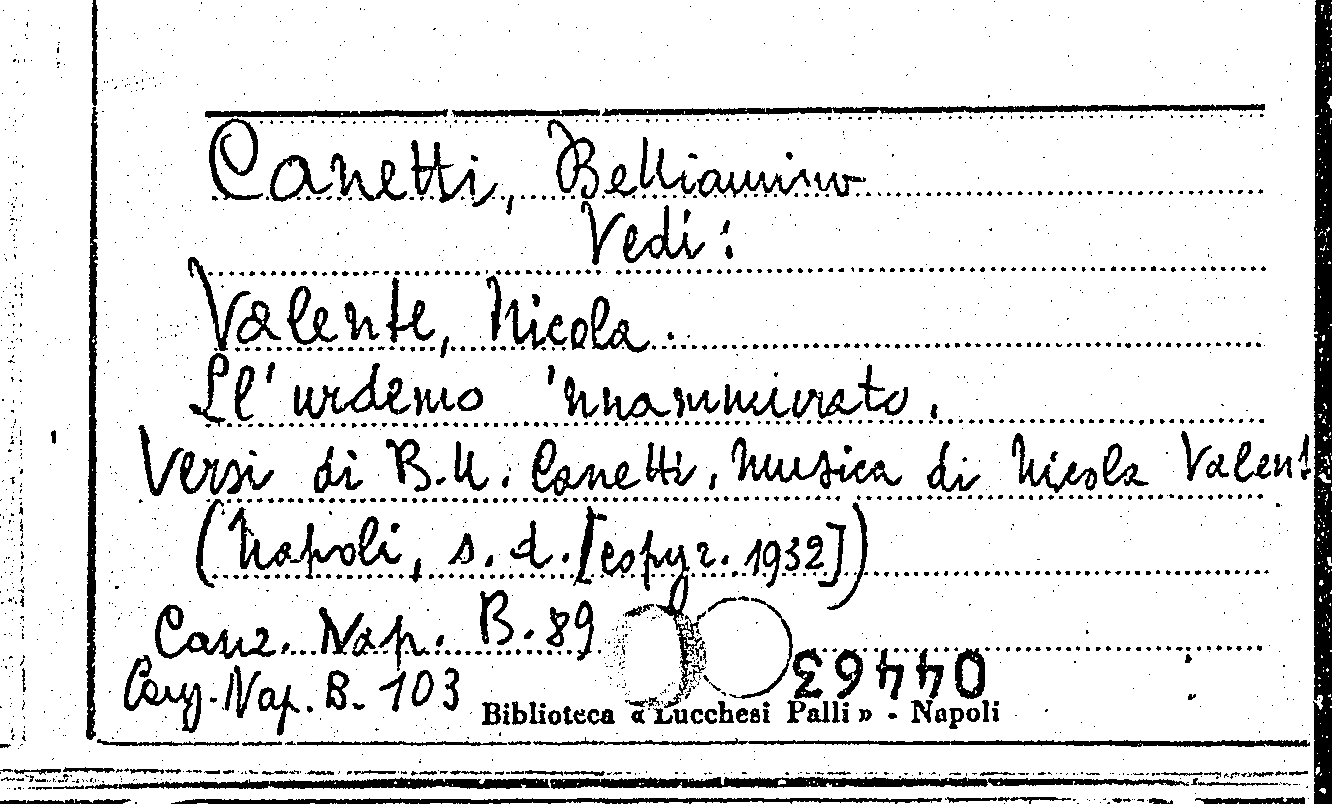 Canetti, Belliamino
Vedi:
Valente, Nicola.
Ll' urdemo 'nnammurato.
Versi di B.U. Canetti, musica di Nicola Valent
(Napoli, s. d. [copyr. 1932])
Canz. Nap. B. 89
Canz. Nap. B. 103
04463
Biblioteca « Lucchesi Palli » - Napoli